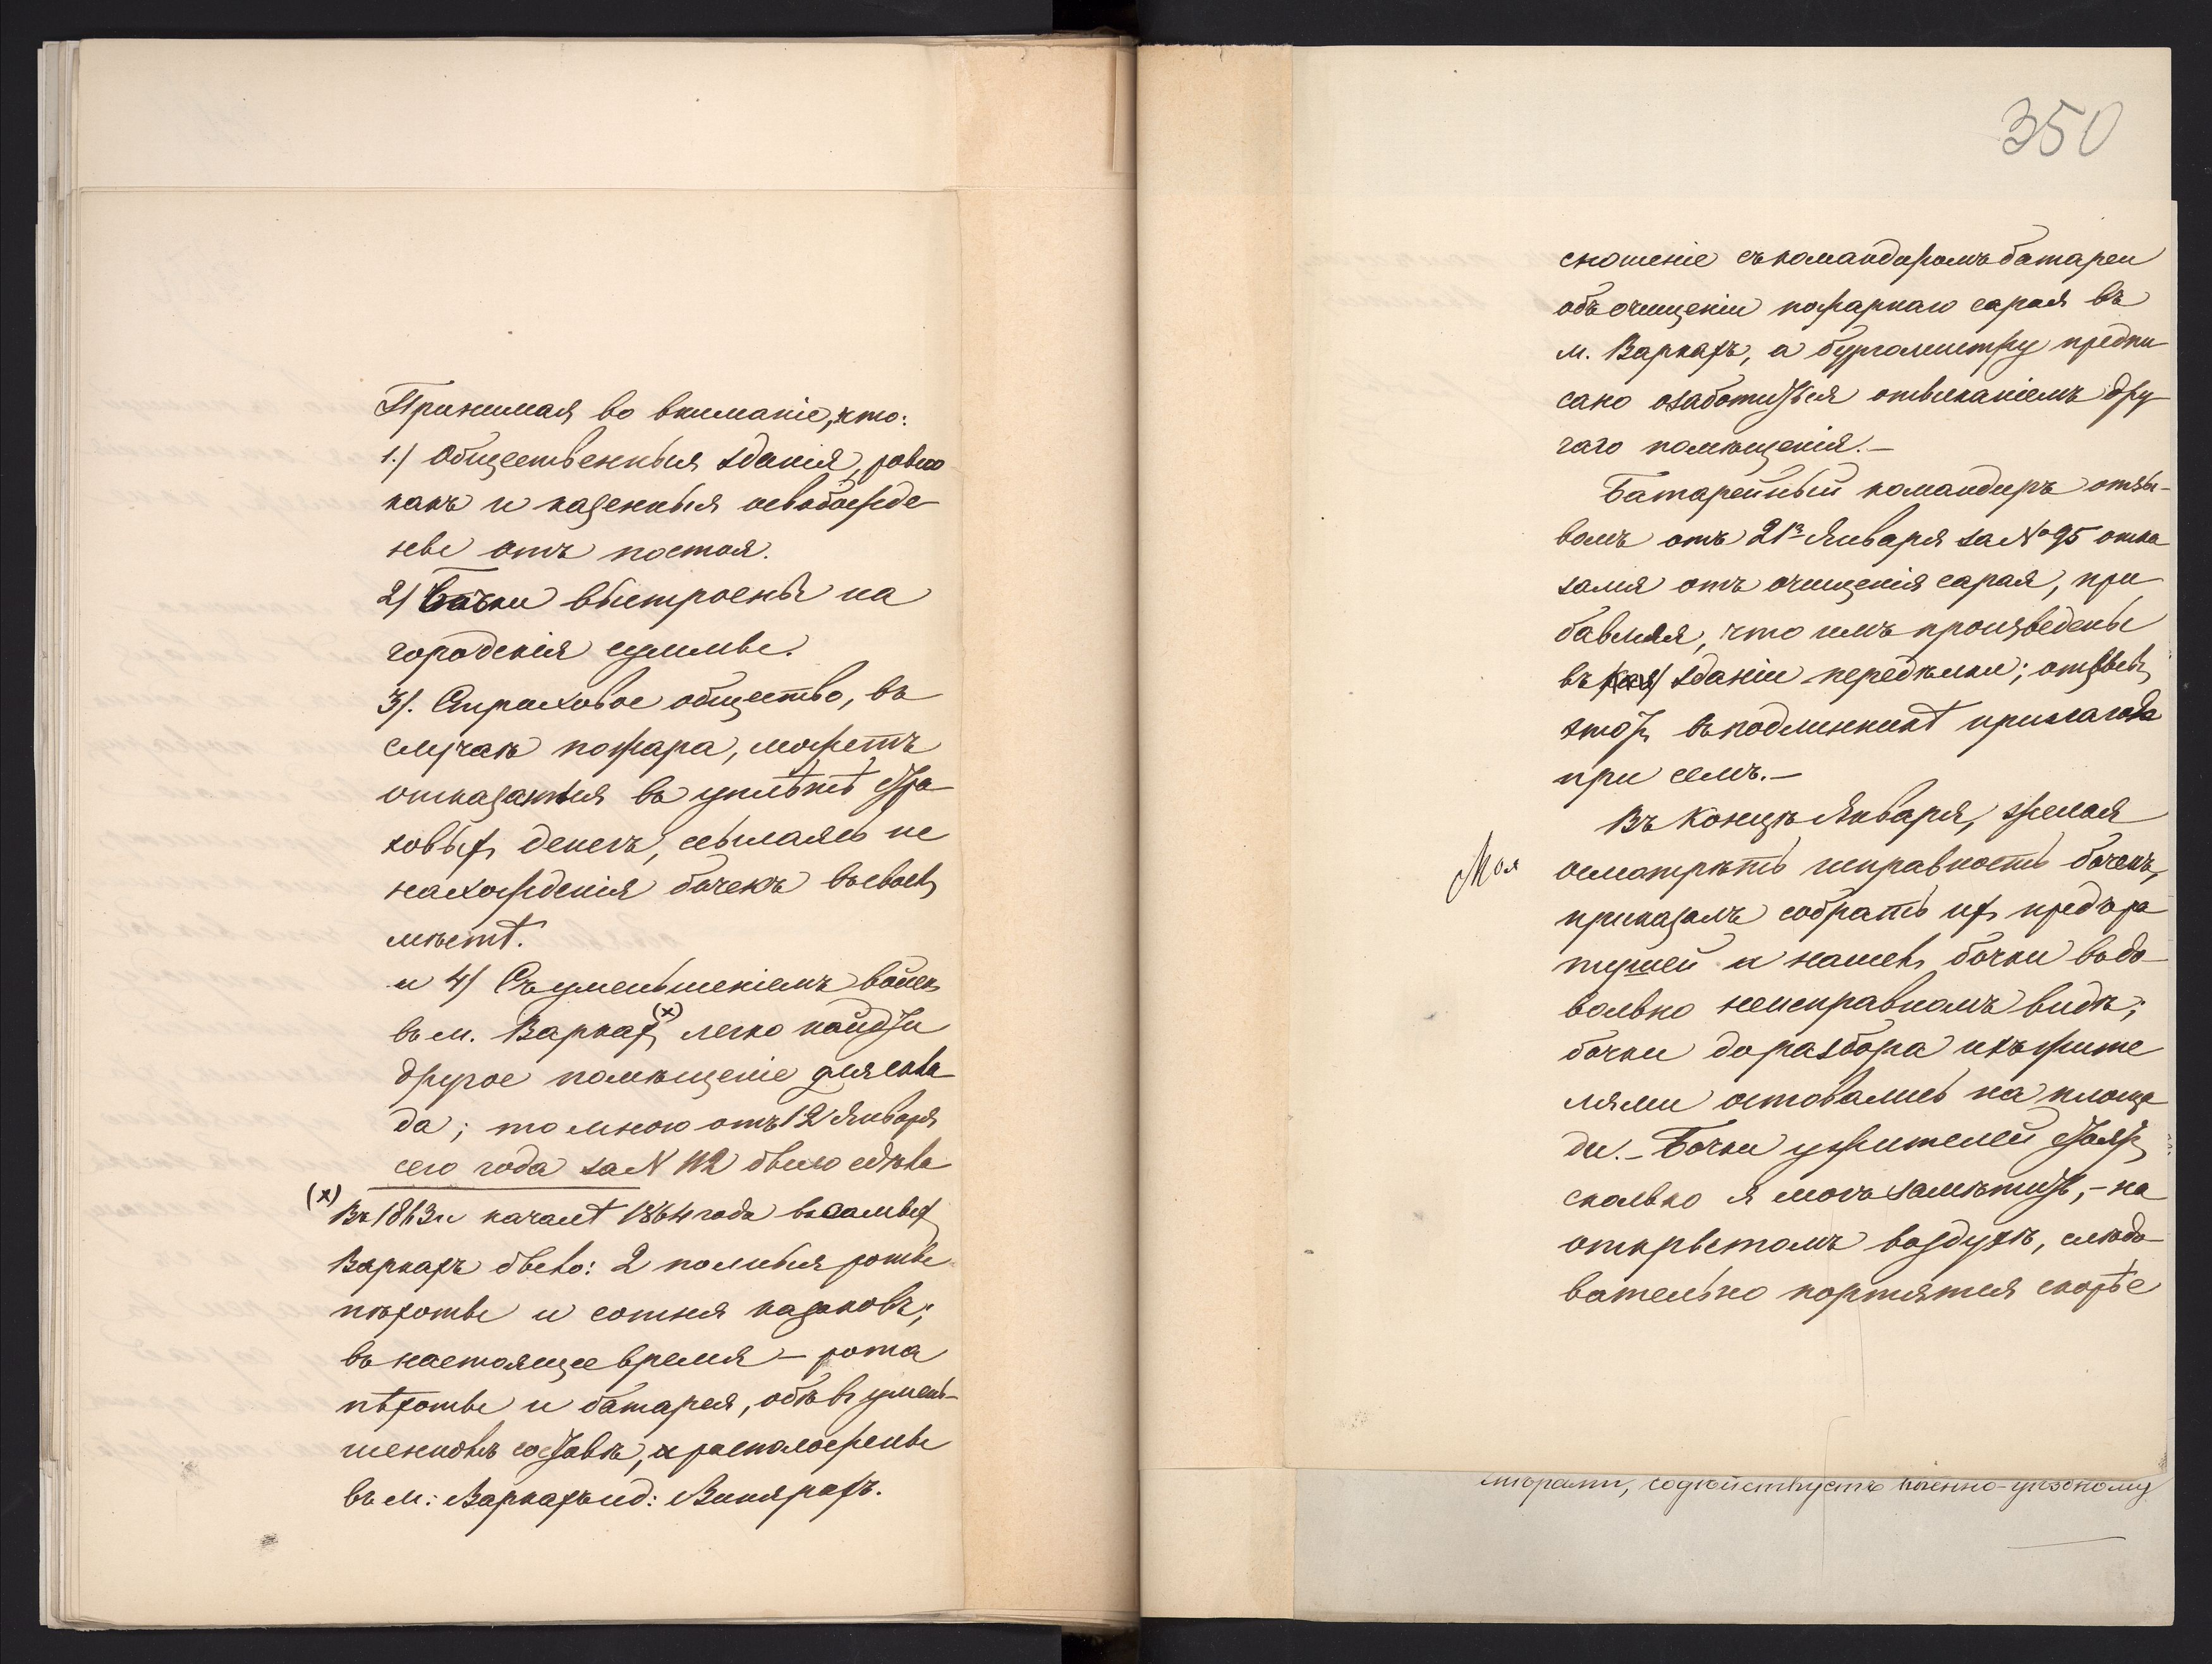 Принимая во вниманіе, что:
1.) Общественныя зданія, равно
какъ и казенныя освобожде
ны отъ постоя.
2) Бочки выстроены на
городскія суммы.
3). Страховое общество, въ
случаѣ пожара, можетъ
отказаться въ уплѣтѣ стра
ховыхъ денегъ, ссылаясь не
нахожденія бочекъ въ своемъ
мѣстѣ.
и 4) Съ уменьшеніемъ войскъ
въ м. Варкахъ (х) легко найдти
другое помѣщеніе для скла
да; то мною отъ 12 Января
сего года за N 112 было сдѣла
(х) Въ 1863 и началѣ 1864 года въ самыхъ
Варкахъ было: 2 полныя роты
пѣхоты и сотня казаковъ;
въ настоящее время – рота
пѣхоты и батарея, обѣ въ умень-
шенномъ составѣ, и расположены
въ м: Варкахъ и д: Винярахъ.
350
сношеніе съ командиромъ батареи
объ очищеніи пожарнаго сарая въ
м. Варкахъ, а бургомистру предпи
сано озаботиться отысканіемъ дру
гаго помѣщенія. –
Батарейный командиръ отзы-
вомъ отъ 21го Января за № 95 отка
зался отъ очищенія сарая, при
бавляя, что имъ произведены
въ зданіи передѣлки; отзывъ
этотъ въ подлинникѣ прилагаю
при семъ. –
Въ концѣ Января, желая
осмотрѣть исправность бочекъ,
приказалъ собрать ихъ предъ ра
тушей и нашелъ бочки въ до
вольно неисправномъ видѣ;
бочки до разбора ихъ жите
лями оставались на площа
ди. – Бочки у жителей стоятъ
сколько я могъ замѣтить, – на
открытомъ воздухѣ, слѣдо
вательно портятся скорѣе
содѣйствуетъ военно-уѣздному